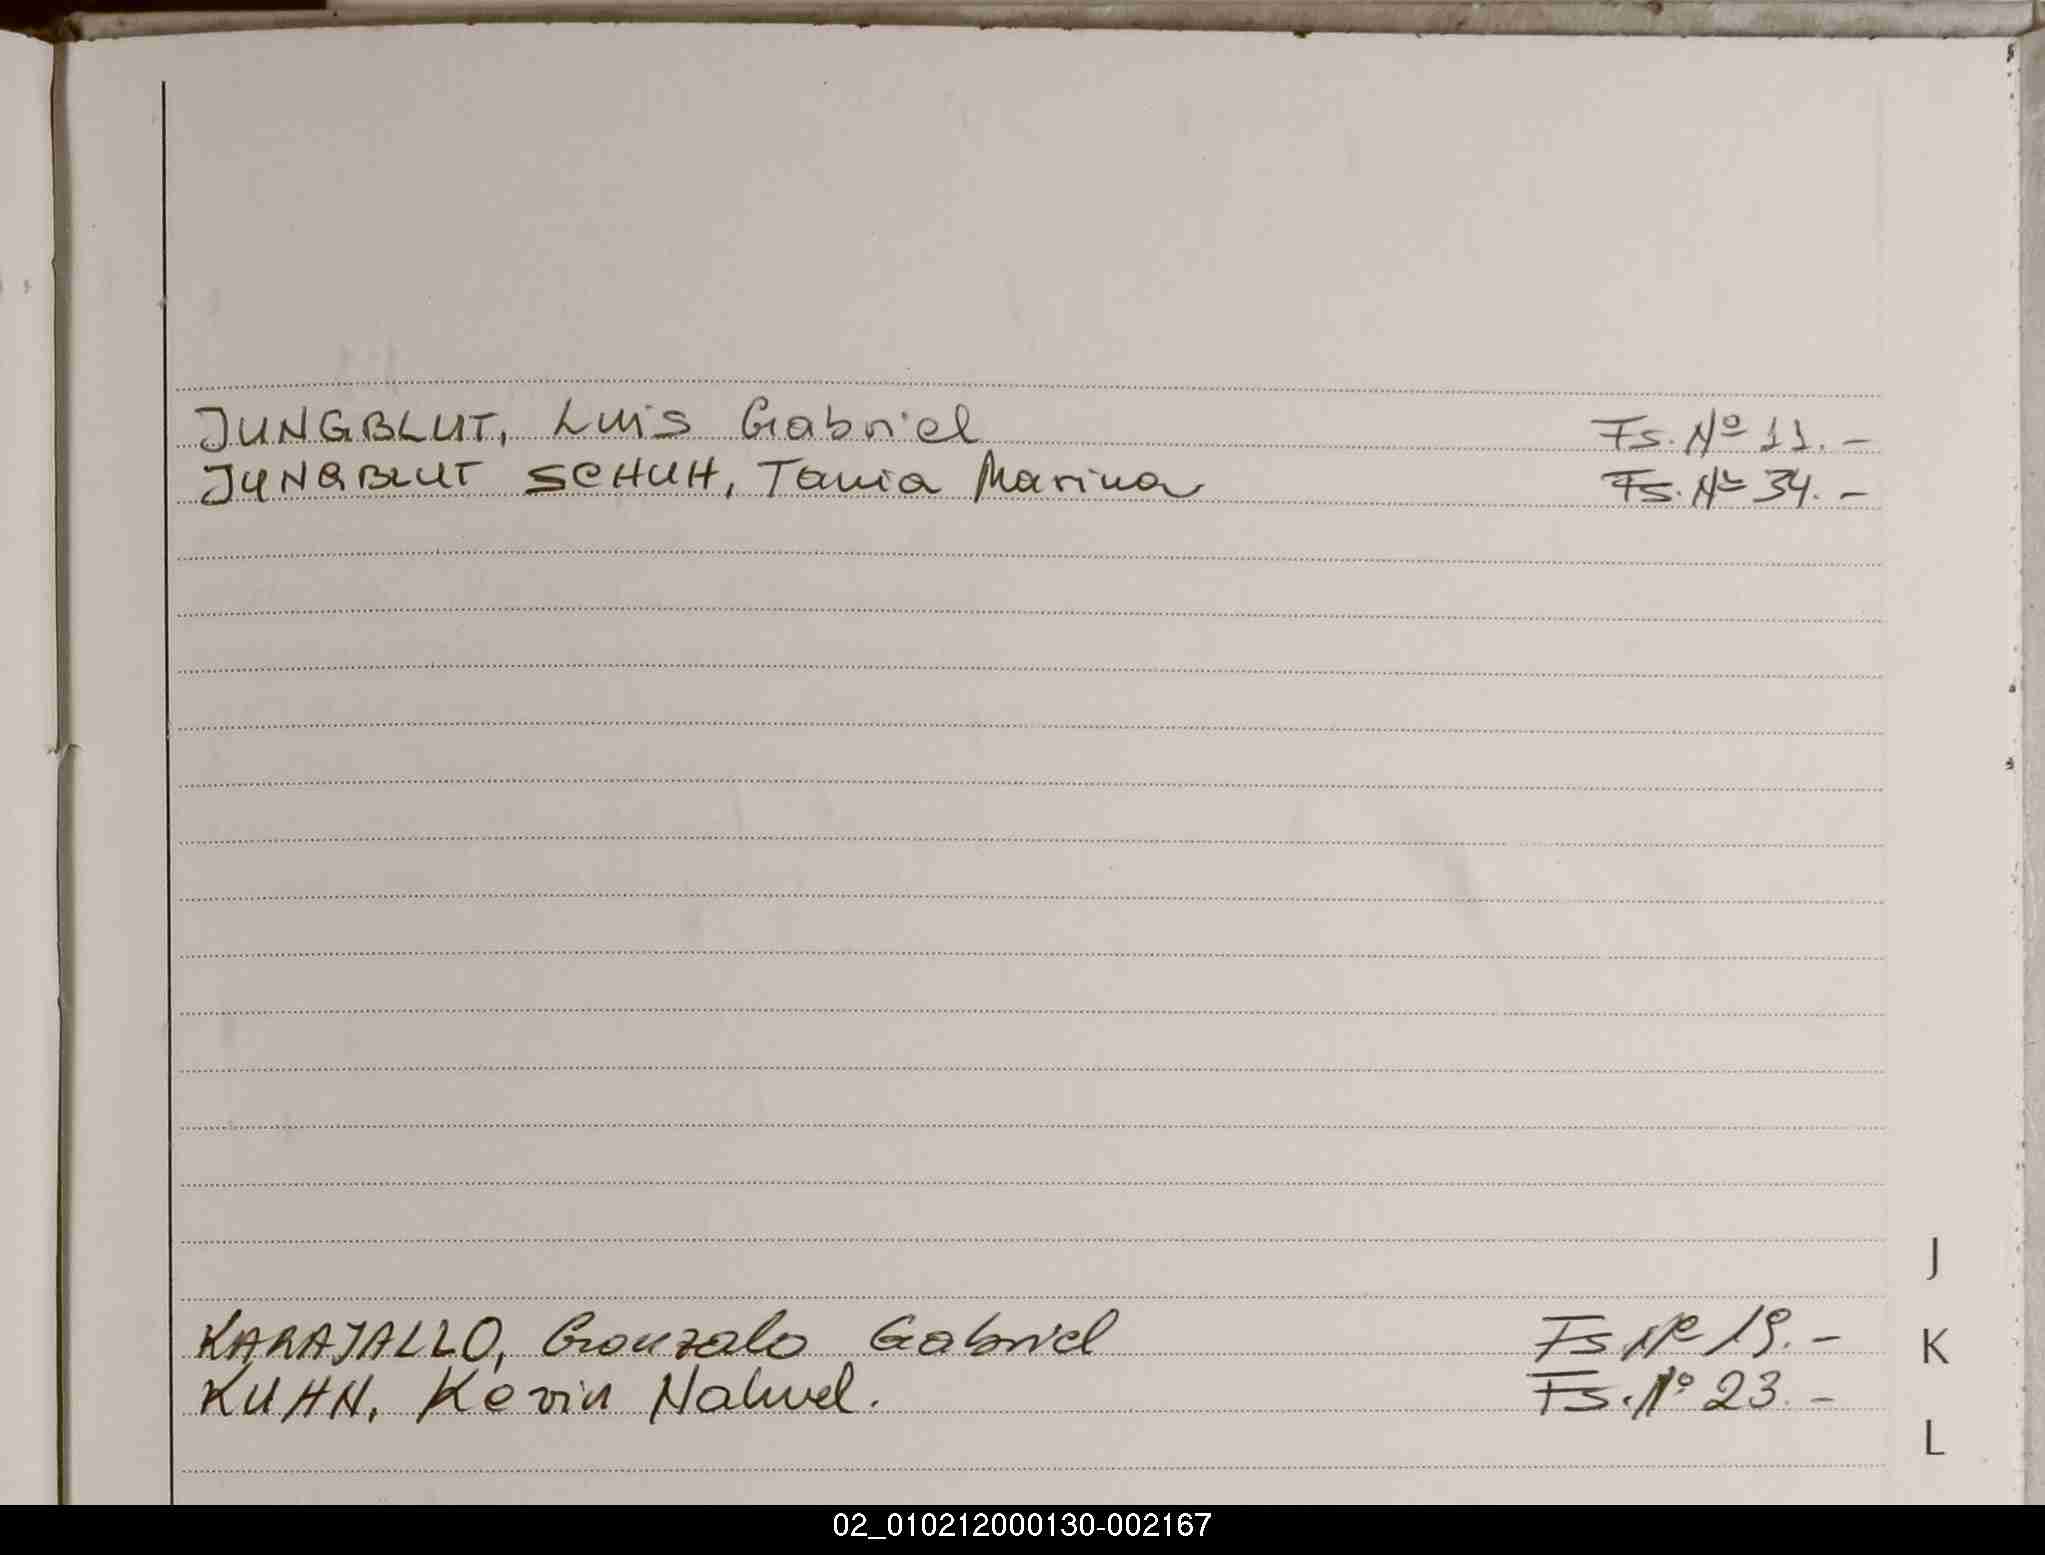 JUNGBLUT, Luis Gabriel Fs. Nº 11. -
JUNGBLUT SCHUH, Tania Marina Fs. Nº 34. -
J
KARAJALLO, Gonzalo Gabriel Fs Nº 19. -
K
KUHN, Kevin Nahuel. Fs. Nº 23. -
L
02_010212000130-002167